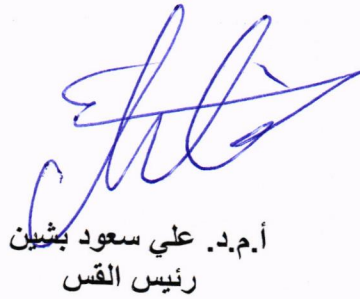 أ.م.د. علي سعود بشين
رئيس القس